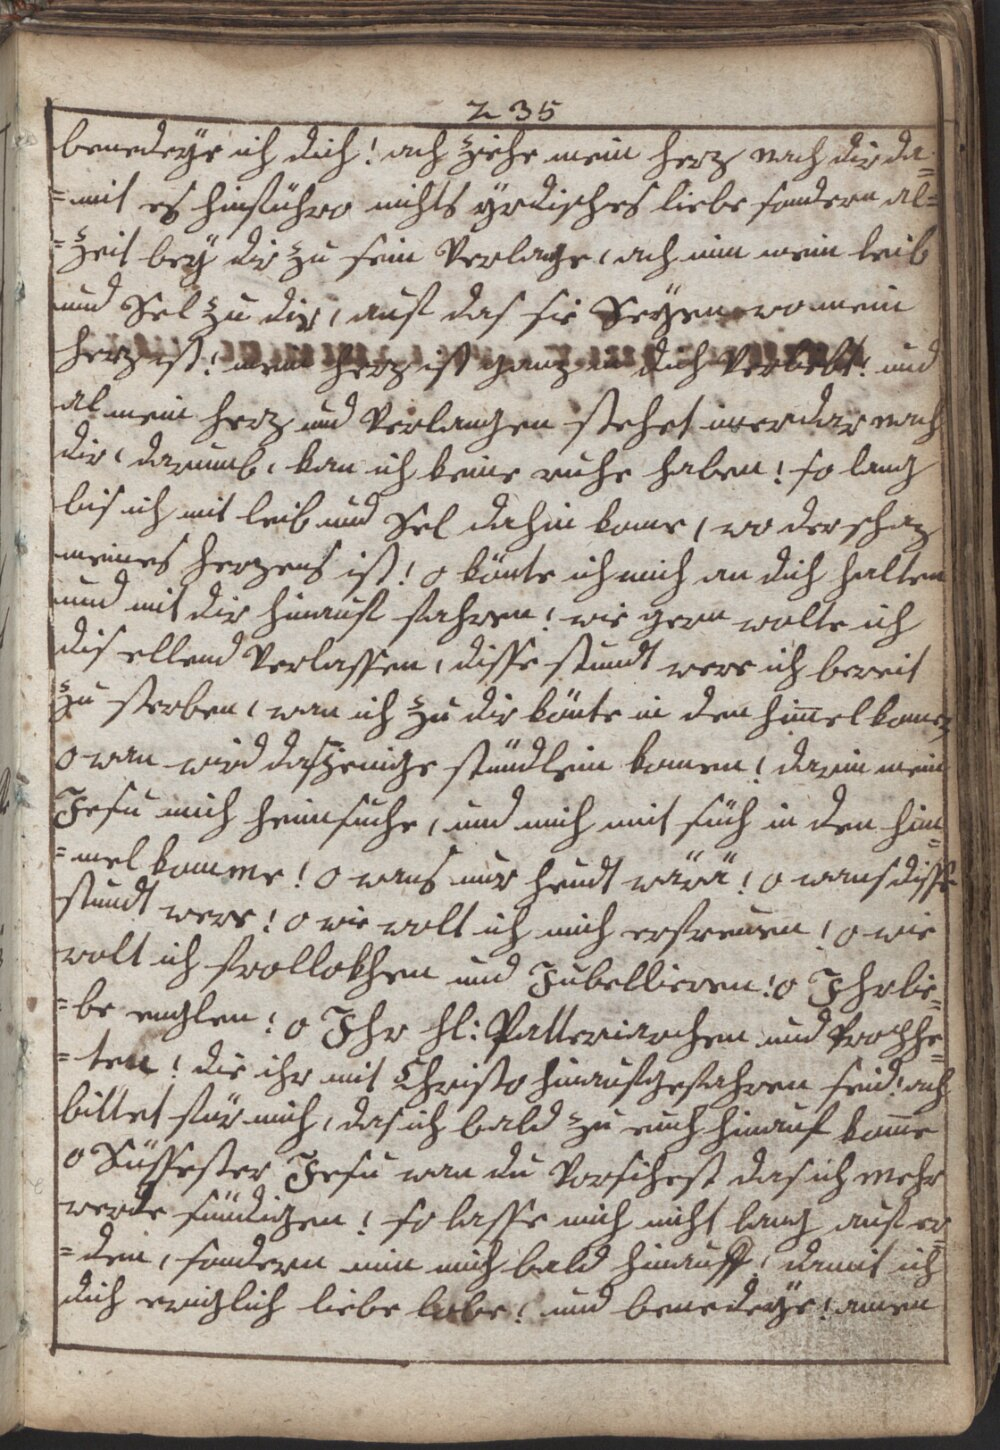 235
benedeÿe ich dich! ach ziehe mein herz nach dir da
=mit es hinführo nichts ÿrdisches liebe sondern al=
=zeit beÿ dir zu sein Verlange, ach nim mein leib
und Sel zu dir, auf das sie Seÿen wo mein
herz ist! mein herz ist ganz in dich Verliebt! und
al mein herz und Verlangen stehet imerdar nach
dir, darumb, kan ich keine ruhe haben! so lang
bis ich mit leib und Sel dahin kome, wo der schaz
meines herzens ist! o könte ich mich an dich halten
und mit dir hinauf fahren! wie gern wolte ich
dis ellend Verlassen, disse stundt were ich bereit
zu sterben, wan ich zu dir könte in den himel komen
o wan wird dasjenige stündlein komen! darin mein
Jesu mich heimsuche, und mich mit sich in den him
=mel komme! o wans nur heudt wärä! o wans disse
stundt were! o wie wolt ich mich erfreuen! o wie
wolt ich frollokhen und Jubellieren! o Jhr lie=
=be englen! o Jhr hl: Patteriarchen und Prophe=
=ten! die ihr mit Christo hinaufgefahren seid! ach
bittet für mich, das ich bald zu euch hinauf kome
o Süssester Jesu wan du Vorsihest das ich mehr
werde sündigen! so lasse mich nicht lang auf er=
=den, sondern nim mich bald hinauff, damit ich
dich ewiglich liebe lobe! und benedeÿe! amen